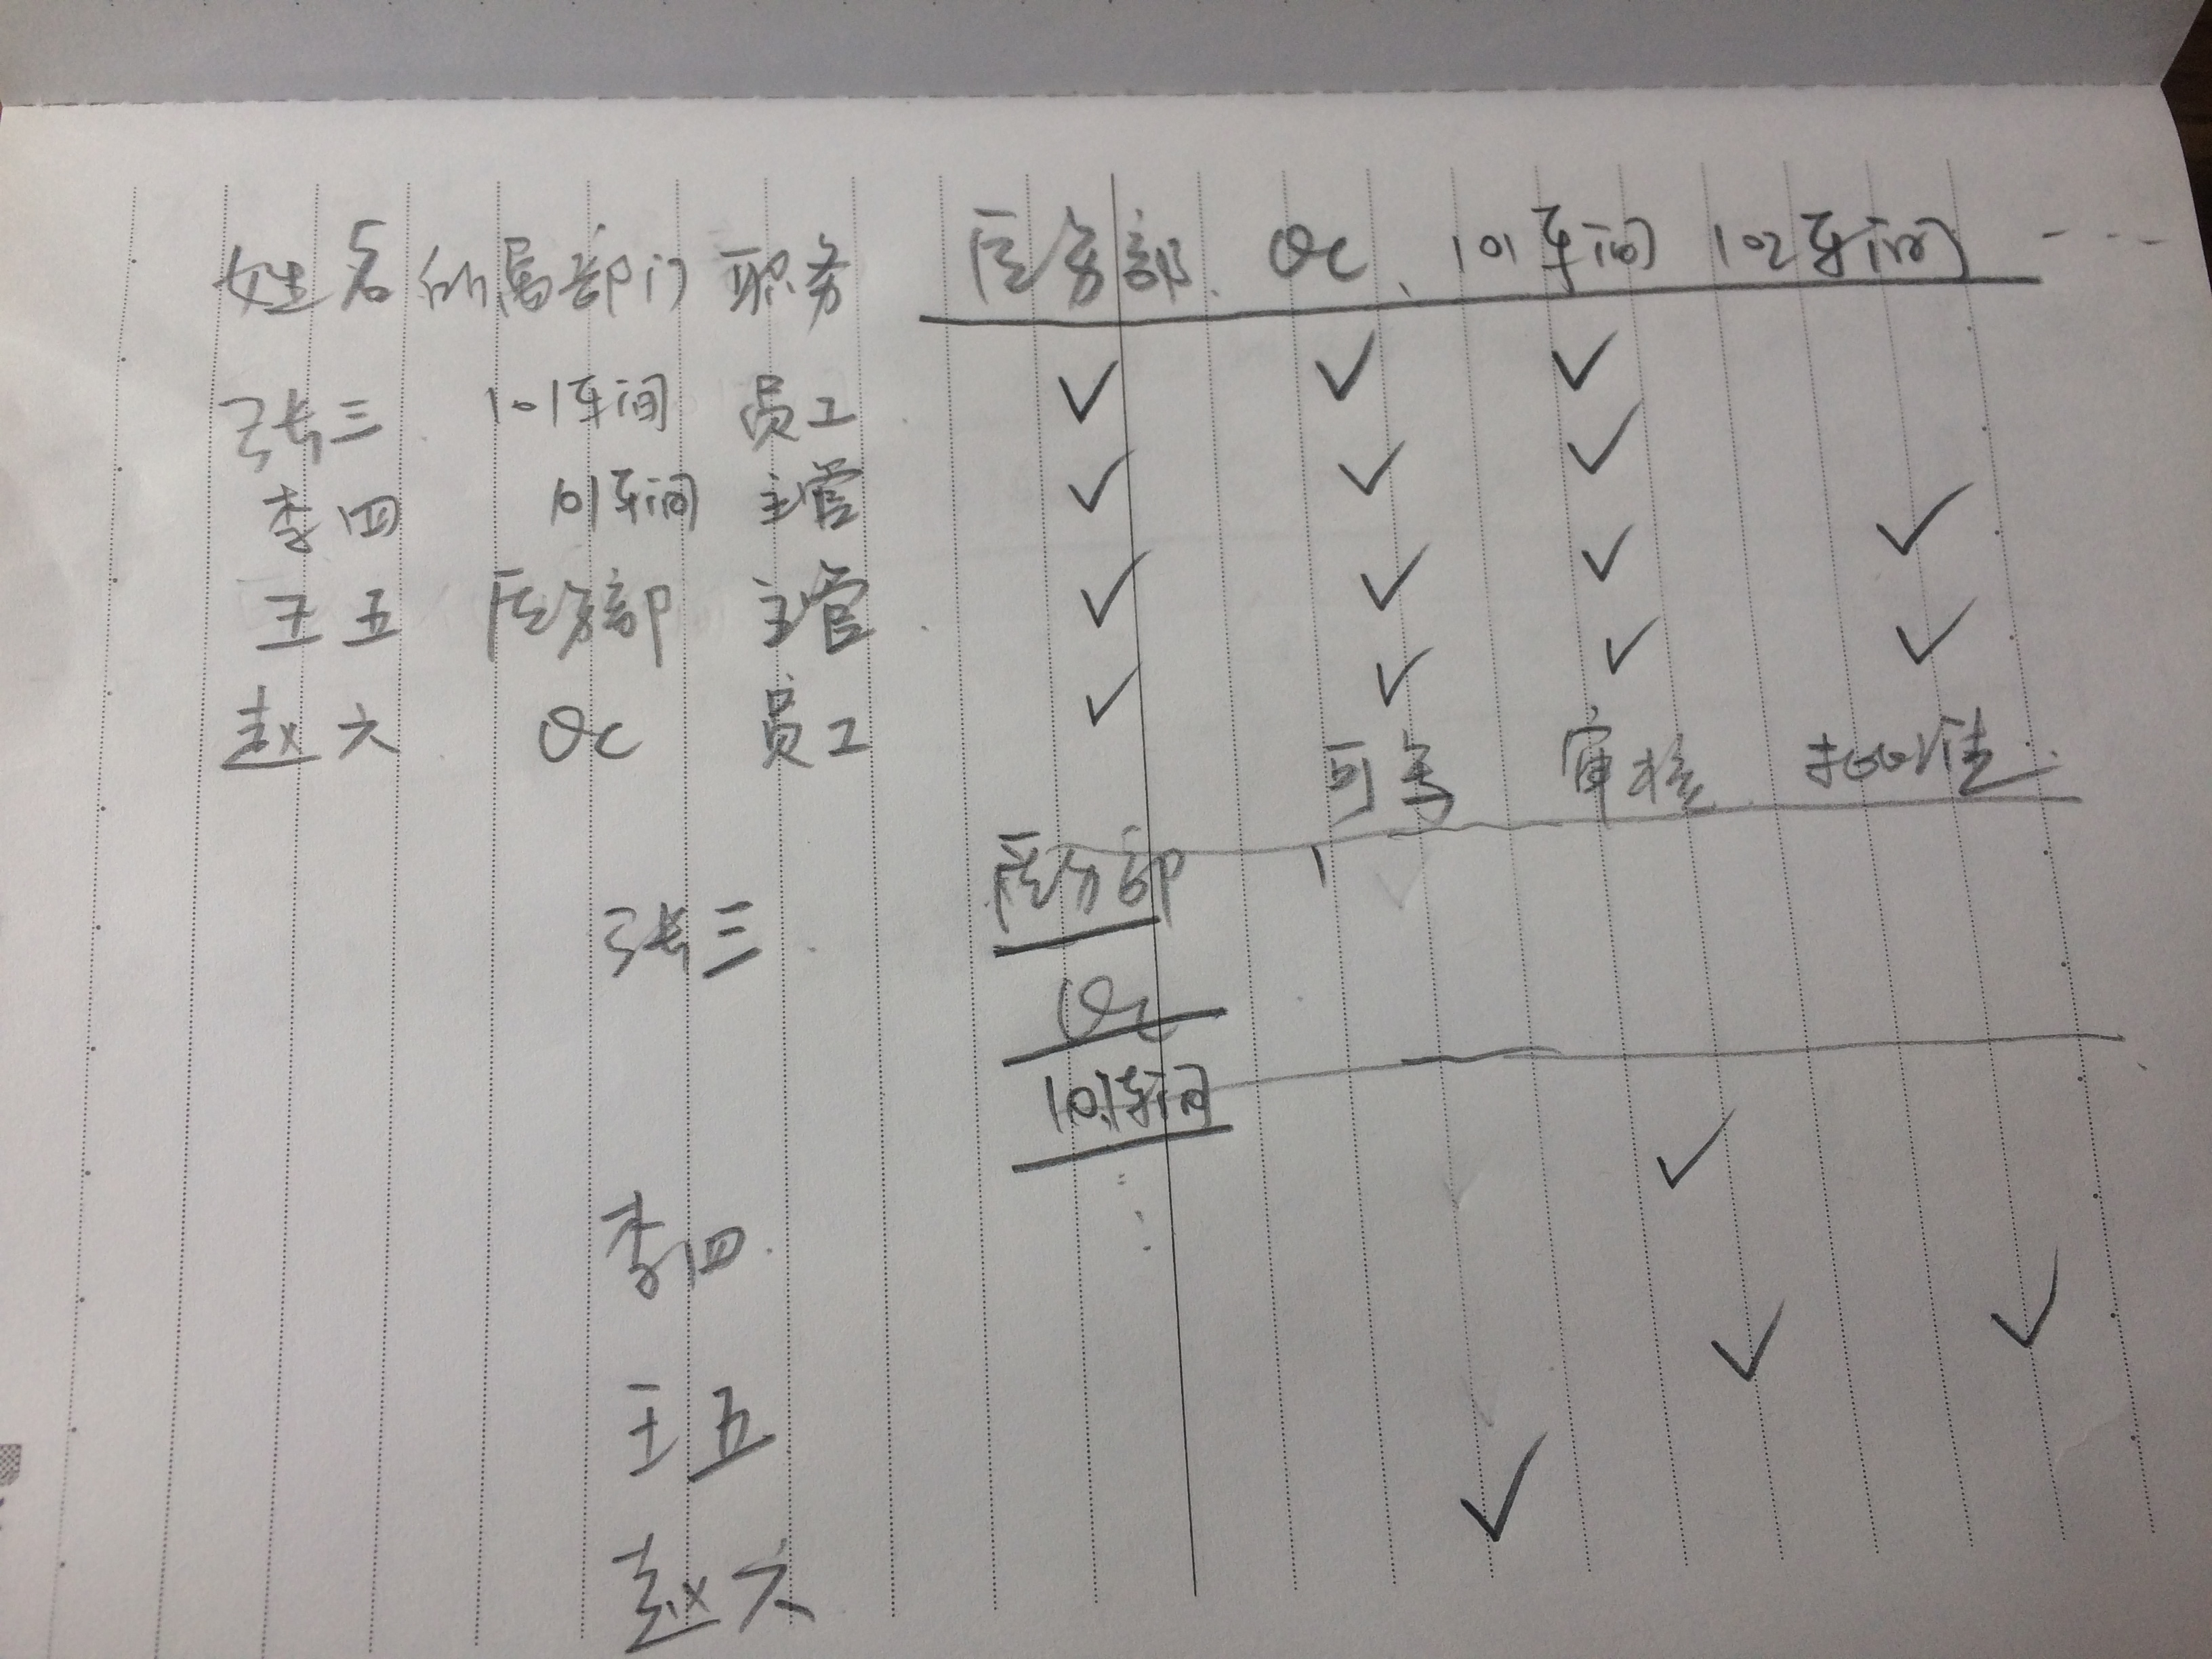 姓名 所属部门 职务 医务部、QC、101车间 102车间 ----
张三 101车间 员工 ✓ ✓ ✓
李四 101车间 主管 ✓ ✓ ✓
王五 医务部 主管 ✓ ✓ ✓ ✓
赵六 QC 员工 ✓ ✓ ✓ ✓
可写 审核 批准
张三 医务部
QC
101车间
李四 ✓
王五 ✓ ✓
赵六 ✓